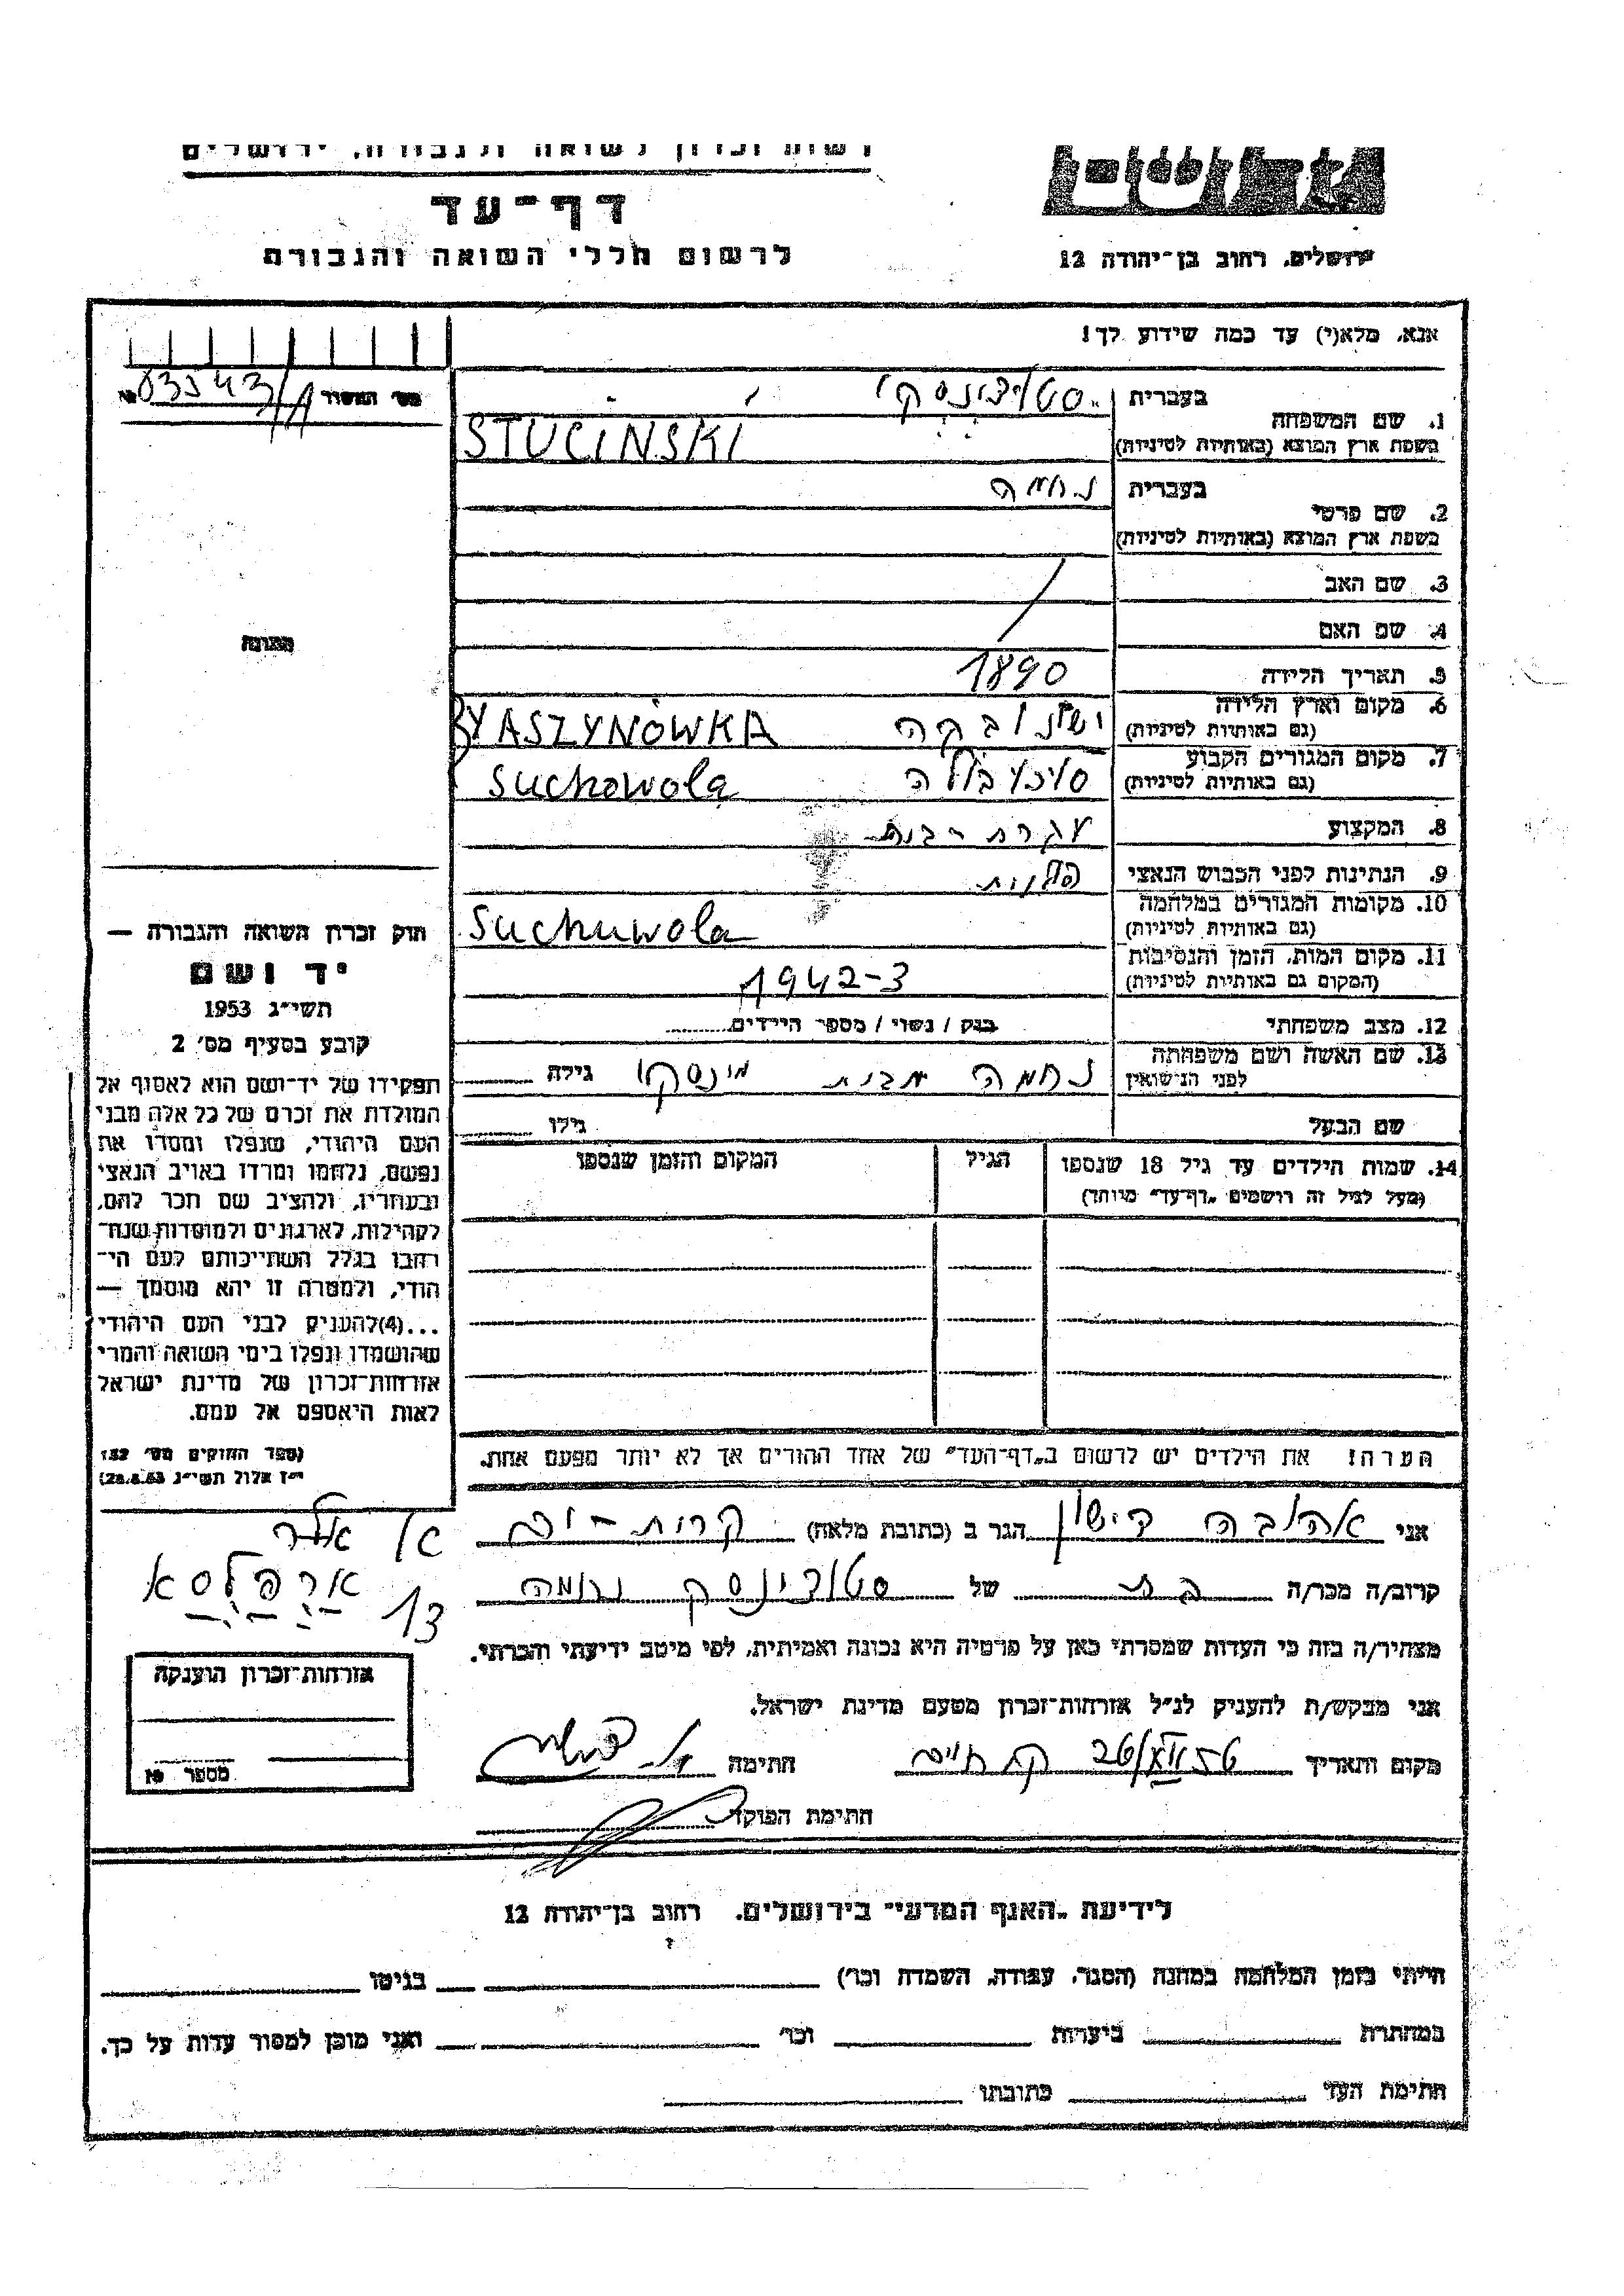 רשות זכרון לשואה ולגבורה, ירושלים
דף־עד
לרשום חללי השואה והגבורה
ירושלים, רחוב בן־יהודה 12
אנא, מלא(י) עד כמה שידוע לך!
מס' המשור
1. שם המשפחה
בעברית
בשפת ארץ המוצא (באותיות לטיניות)
STUCINSKI
2. שם פרטי
בעברית נחמה
בשפת ארץ המוצא (באותיות לטיניות)
3. שם האב
4. שם האם
5. תאריך הלידה 1890
6. מקום וארץ הלידה
(גם באותיות לטיניות)
YASZYNÓWKA
7. מקום המגורים הקבוע
(גם באותיות לטיניות)
Suchowola
8. המקצוע עקרת-בית
9. הנתינות לפני הכבוש הנאצי
10. מקומות המגורים במלחמה
(גם באותיות לטיניות)
Suchuwola
11. מקום המות, הזמן והנסיבות
(המקום גם באותיות לטיניות)
1942-3
12. מצב משפחתי
רנק / נשוי / מספר הילדים
13. שם האשה ושם משפחתה
לפני הנישואין
נחמה מבית מינסקי גילה
שם הבעל גילו
14. שמות הילדים עד גיל 18 שנספו
(מעל לגיל זה רושמים „דף־עד" מיוחד)
הגיל
המקום והזמן שנספו
הערה! את הילדים יש לרשום ב„דף־העד" של אחד ההורים אך לא יותר מפעם אחת.
תמונה
חוק זכרון השואה והגבורה —
יד ושם
תשי"ג 1953
קובע בסעיף מס' 2
תפקידו של יד־ושם הוא לאסוף אל
המולדת את זכרם של כל אלה מבני
העם היהודי, שנפלו ומסרו את
נפשם, נלחמו ומרדו באויב הנאצי
ובעוזריו, ולהציב שם וזכר להם,
לקהילות, לארגונים ולמוסדות שנח־
רבו בגלל השתייכותם לעם הי־
הודי, ולמטרה זו יהא מוסמך —
...(4)להעניק לבני העם היהודי
שהושמדו ונפלו בימי השואה והמרי
אזרחות־זכרון של מדינת ישראל
לאות היאספם אל עמם.
(ספר החוקים מס' 132
י"ז אלול תשי"ג 28.8.53)
אני אהובה הגר ב (כתובת מלאה)
קרוב/ה מכר/ה בת של נחמה
מצהיר/ה בזה כי העדות שמסרתי כאן על פרטיה היא נכונה ואמיתית, לפי מיטב ידיעתי והכרתי.
אני מבקש/ת להעניק לנ"ל אזרחות־זכרון מטעם מדינת ישראל.
מקום ותאריך חתימה
חתימת הפוקד
13
אזרחות־זכרון הוענקה
מספר
לידיעת „האגף המדעי" בירושלים, רחוב בן־יהודה 12
הייתי בזמן המלחמה במחנה (הסגר, עבודה, השמדה וכו') בגיטו
במחתרת ביערות וכו' ואני מוכן למסור עדות על כך.
חתימת העד כתובתו